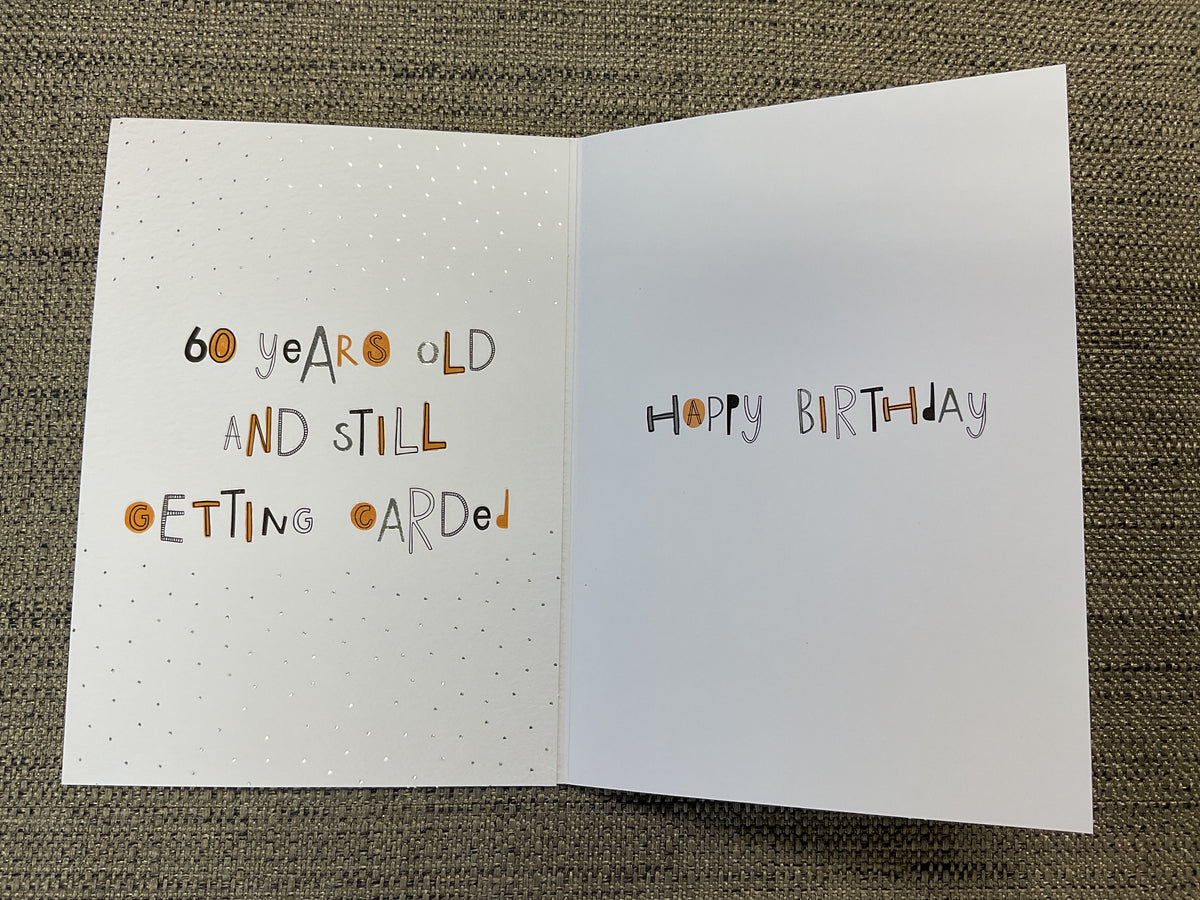 60 YeARS OLD
AND STILL
GETTING CARDed
HAPPY BIRTHdAY